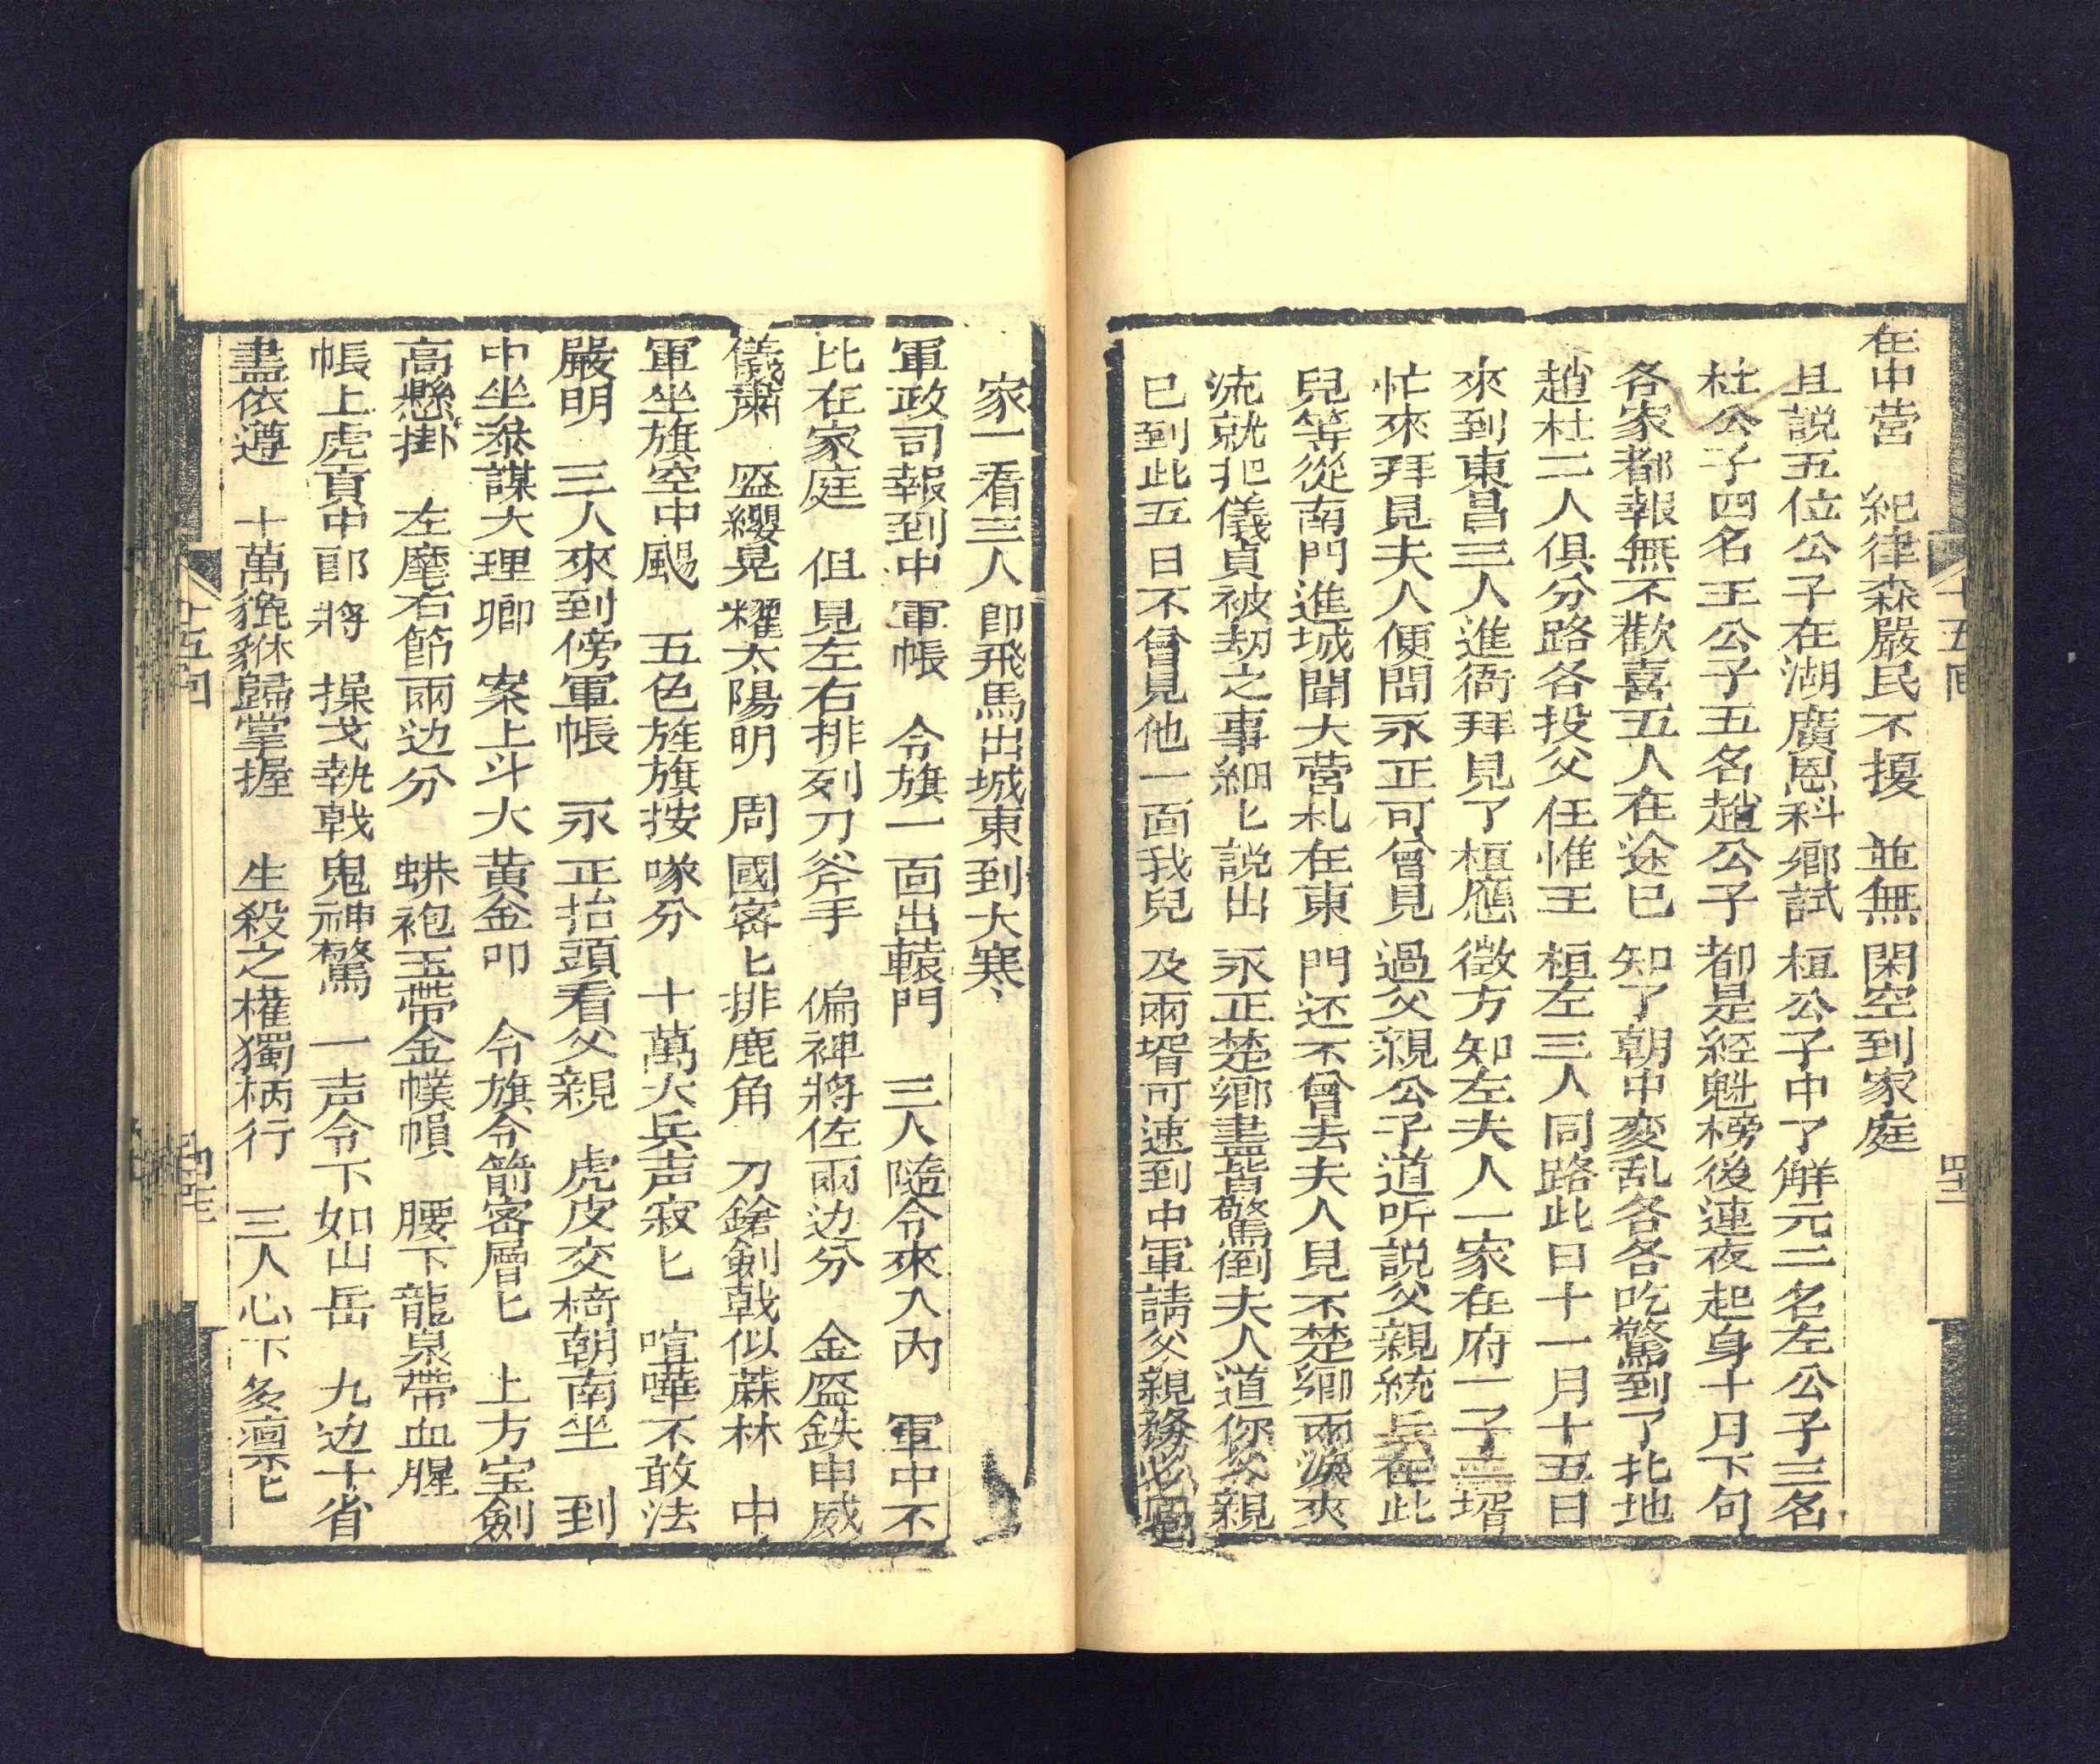 在中營　紀律森嚴民不擾　並無閑空到家庭
且説五位公子在湖廣恩科鄉試桓公子中了解元二名左公子三名
杜公子四名王公子五名趙公子都是經魁榜後連夜起身十月下旬
各家都報無不歡喜五人在途已知了朝中変乱各各吃驚到了北地
趙杜二人俱分路各投父任惟王桓左三人同路此日十一月十五日
來到東昌三人進衙拜見了桓應徵方知左夫人一家在府一子二壻
忙來拜見夫人便問永正可曾見過父親公子道听説父親統兵在此
兒等從南門進城聞大營札在東門还不曾去夫人見不楚卿兩淚夾
流就把儀貞被刼之事細匕説出永正楚卿盡皆驚倒夫人道你父親
已到此五日不曾見他一面我兒及兩壻可速到中軍請父親務必回
家一看三人即飛馬出城東到大寒
軍政司報到中軍帳　令旗一面出轅門　三人隨令來入內　軍中不
比在家庭　但見左右排列刀斧手　偏裨將佐兩边分　金盔鉄申威
儀肅　盔纓晃耀太陽明　周國密匕排鹿角　刀鎗劍戟似蔴林　中
軍坐旗空中颺　五色旌旗按喙分　十萬大兵声寂匕　喧嘩不敢法
嚴明　三人來到傍軍帳　永正抬頭看父親　虎皮交椅朝南坐　到
中坐叅謀大理卿　案上斗大黃金印　令旗令箭密層匕　上方宝劍
高懸掛　左麾右節兩边分　蟒袍玉帶金幞幀　腰下龍泉帶血腥
帳上虎賁中郎將　操戈執戟鬼神驚　一声令下如山岳　九边十省
盡依遵　十萬貔貅歸掌握　生殺之權獨柄行　三人心下多凛匕
十五回
十五回